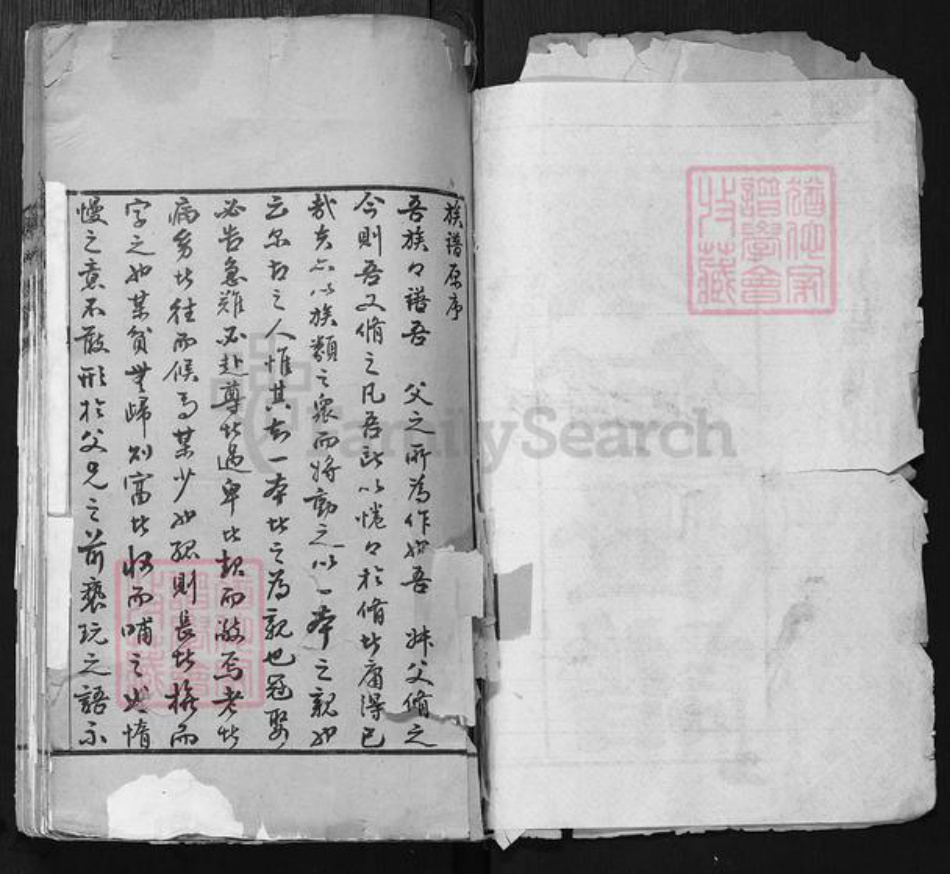 族譜原序
吾族々譜吾 父之所為作也吾 叔父脩之
今則吾又脩之凡吾所以惓々於脩者庸得已
哉夫亦以族類之眾而將動之以一本之親也
云尔古之人惟其知一本者之為親也冠娶
必告急難必赴尊者過卑者起而敬焉老者
病旁者往而候焉某少也孤則長者撫而
字之也某貧無歸則富者收而哺之也惰
慢之意不敢形於父兄之前褻玩之語不
FamilySearch
譜學會
收藏